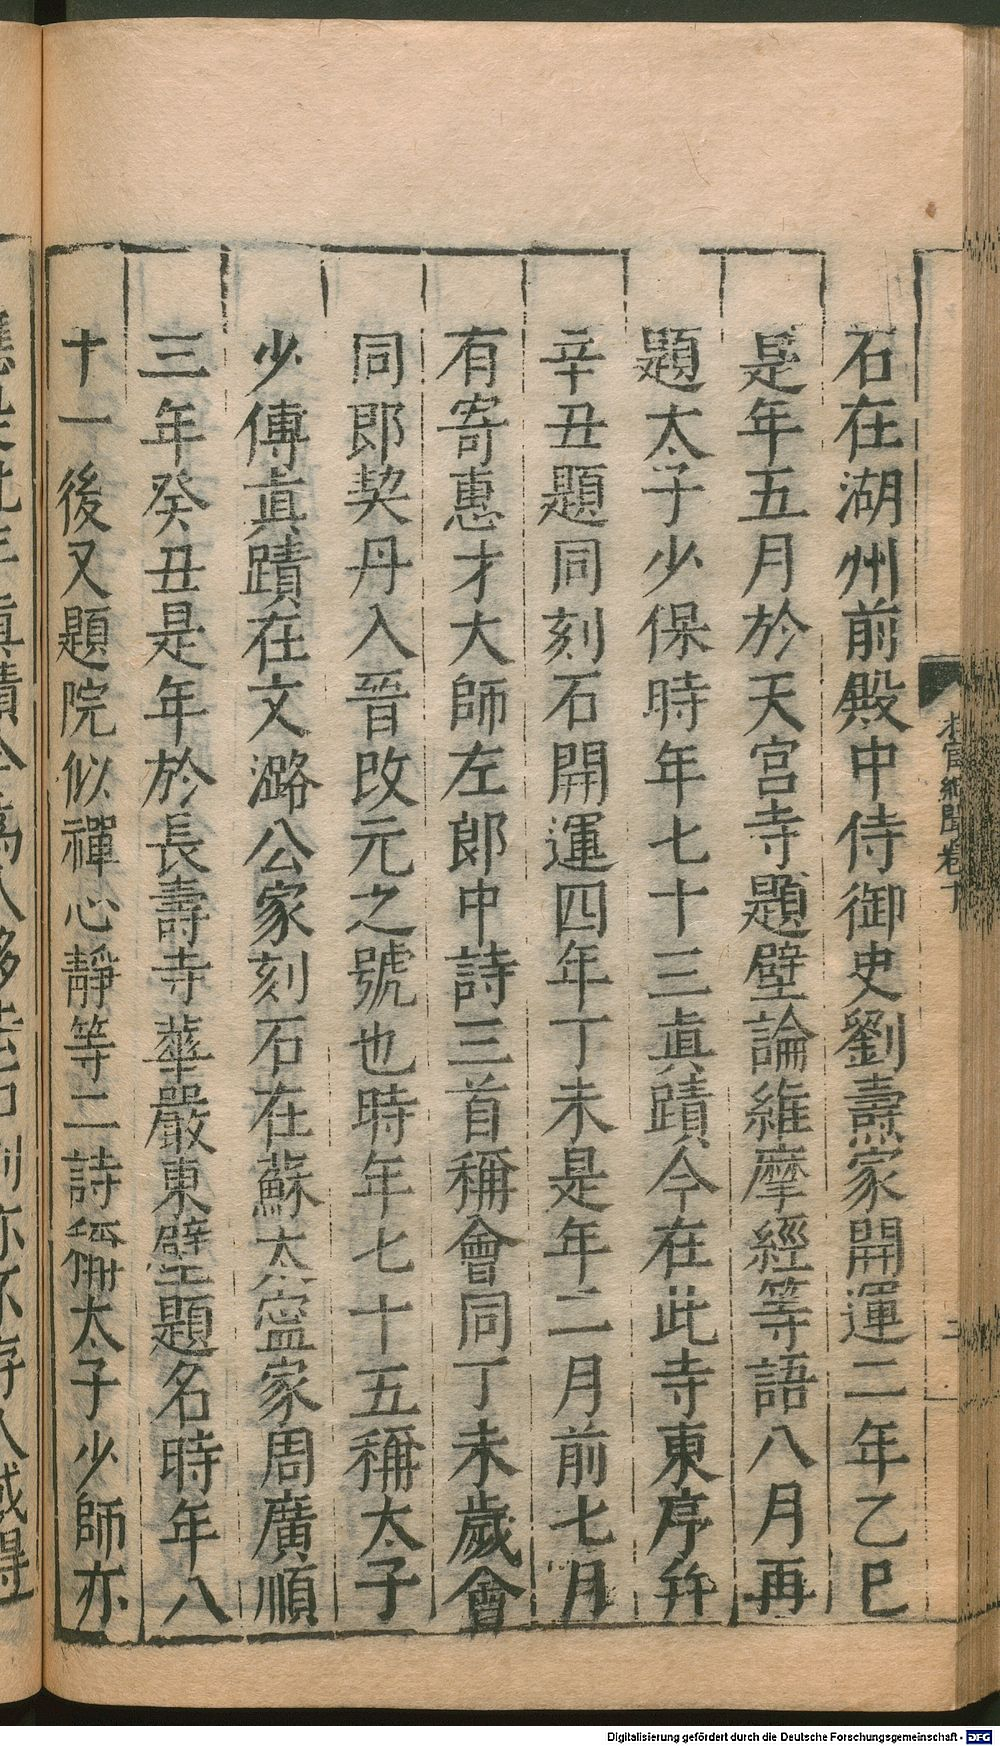 石在湖州前殿中侍御史劉壽家開運二年乙巳
是年五月於天宮寺題壁論維摩經等語八月再
題太子少保時年七十三眞蹟今在此寺東序并
辛丑題同刻石開運四年丁未是年二月前七月
有寄惠才大師左郎中詩三首稱會同丁未歲會
同即契丹入晉改元之號也時年七十五稱太子
少傅眞蹟在文潞公家刻石在蘇太寧家周廣順
三年癸丑是年於長壽寺華嚴東壁題名時年八
十一後又題院似禪心靜等二詩稱太子少師亦
Digitalisierung gefördert durch die Deutsche Forschungsgemeinschaft - DFG